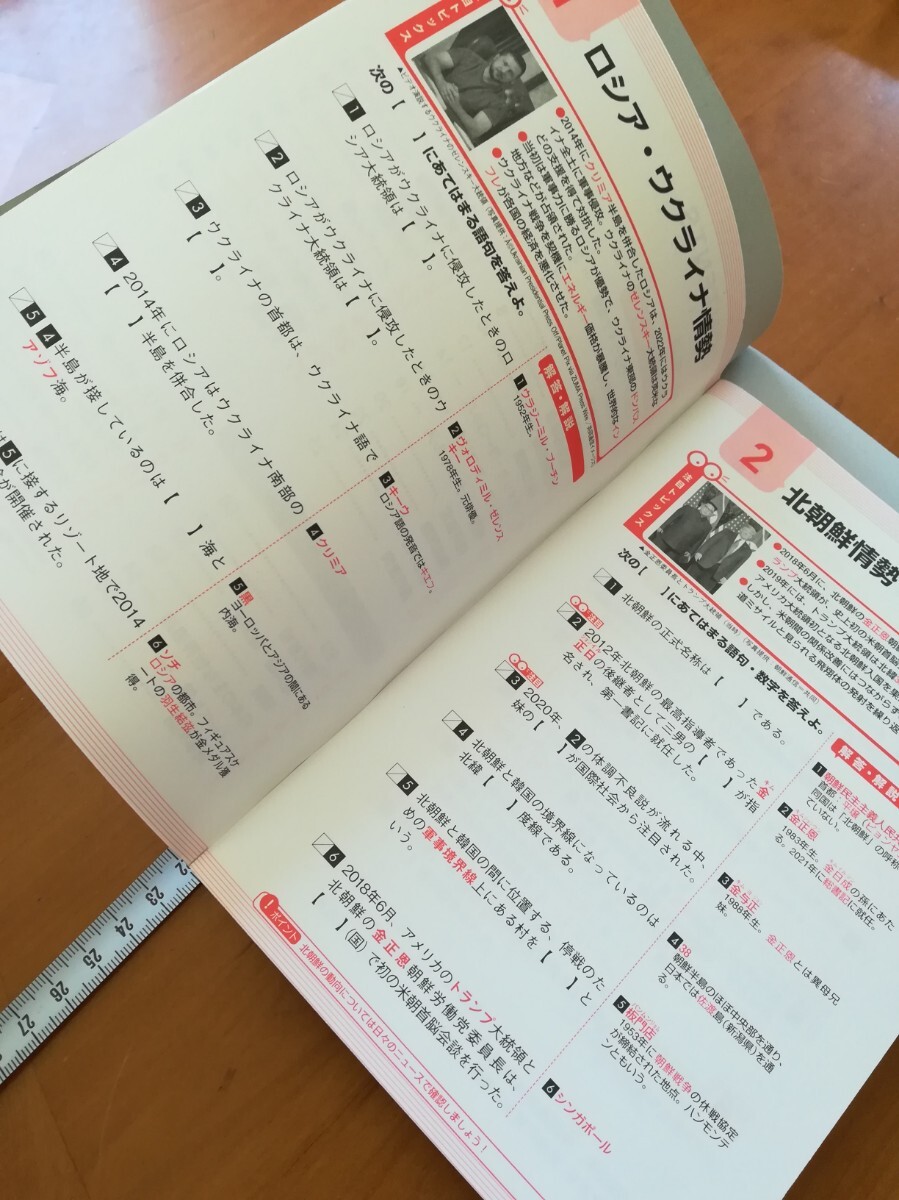 注目トピックス
ロシア・ウクライナ情勢
●2014年にクリミア半島を併合したロシアは、2022年にはウクラ
イナ全土に軍事侵攻。ウクライナのゼレンスキー大統領は欧米な
どの支援を得て対抗した。
●当初は軍事力に勝るロシアが優勢で、ウクライナ東部のドンバス
地方などが占領された。
●ウクライナ戦争を契機にエネルギー価格が暴騰し、世界的なイン
フレが各国の経済を悪化させた。
▲ビデオ演説するウクライナのゼレンスキー大統領
次の【　】にあてはまる語句を答えよ。
1 ロシアがウクライナに侵攻したときのロ
シア大統領は【　】。
2 ロシアがウクライナに侵攻したときのウ
クライナ大統領は【　】。
3 ウクライナの首都は、ウクライナ語で
【　】。
4 2014年にロシアはウクライナ南部の
【　】半島を併合した。
5 4半島が接しているのは【　】海と
アゾフ海。
5に接するリゾート地で2014
が開催された。
解答・解説
1 ウラジーミル・プーチン
1952年生。
2 ヴォロディミル・ゼレンス
キー
1978年生。元俳優。
3 キーウ
ロシア語の発音ではキエフ。
4 クリミア
5 黒
ヨーロッパとアジアの間にある
内海。
6 ソチ
ロシアの都市。フィギュアスケ
ートの羽生結弦が金メダル獲
得。
2
北朝鮮情勢
注目トピックス
●2018年6月に、北朝鮮の金正恩朝鮮
ランプ大統領が、史上初の米朝首脳
●2019年には、トランプ大統領は北緯
アメリカ大統領初となる北朝鮮入国を果
●しかし、米朝間の関係改善にはつながらず
道ミサイルと見られる飛翔体の発射を繰り返
▲金正恩委員長とトランプ大統領（当時）（写真提供　朝鮮通信＝共同）
次の【　】にあてはまる語句・数字を答えよ。
1 北朝鮮の正式名称は【　】である。
注目
2 2012年北朝鮮の最高指導者であった金
正日の後継者として三男の【　】が指
名され、第一書記に就任した。
注目
3 2020年、2の体調不良説が流れる中、
妹の【　】が国際社会から注目された。
4 北朝鮮と韓国の境界線になっているのは
北緯【　】度線である。
5 北朝鮮と韓国の間に位置する、停戦のた
めの軍事境界線上にある村を【　】と
いう。
6 2018年6月、アメリカのトランプ大統領と
北朝鮮の金正恩朝鮮労働党委員長は、
【　】(国)で初の米朝首脳会談を行った。
解答・解説
1 朝鮮民主主義人民共
首都
同国は「北朝鮮」の呼称
ていない。
2 金正恩
1983年生。金日成の孫にあた
る。2021年に総書記に就任。
3 金与正
1988年生。金正恩とは異母兄
妹。
4 38
朝鮮半島のほぼ中央部を通り、
日本では佐渡島(新潟県)を通
る。
5 板門店
1953年に朝鮮戦争の休戦協定
が締結された地点。ハンモンテ
ンともいう。
6 シンガポール
！ポイント 北朝鮮の動向については日々のニュースで確認しましょう！
23 24 25 26 27